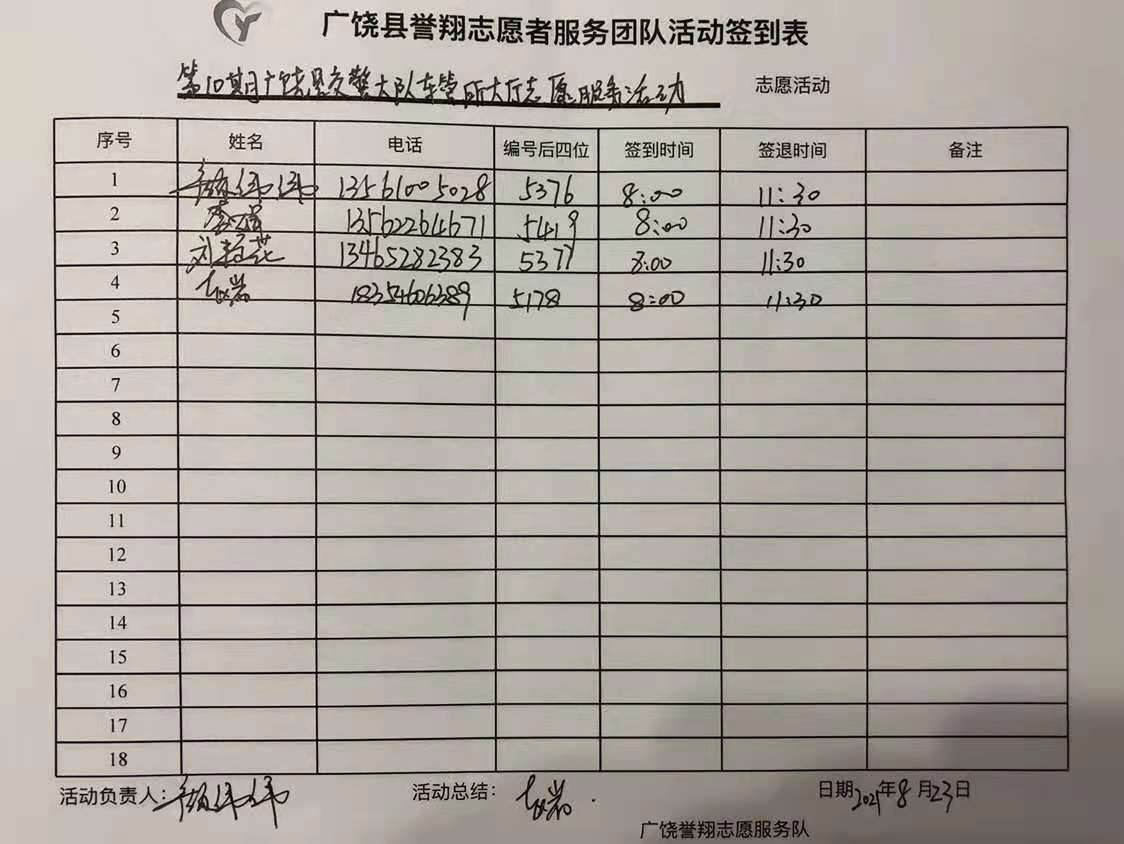 广饶县誉翔志愿者服务团队活动签到表
第10期广饶县交警大队车管所大厅志愿服务活动 志愿活动
序号 姓名 电话 编号后四位 签到时间 签退时间 备注
1 伟伟 13561005028 5376 8:00 11:30
2 李 13562264671 5419 8:00 11:30
3 刘 花 13465282383 5377 8:00 11:30
4 赵岩 18354606389 5178 8:00 11:30
5
6
7
8
9
10
11
12
13
14
15
16
17
18
活动负责人： 伟伟 活动总结： 赵岩 日期2021年8月23日
广饶誉翔志愿服务队